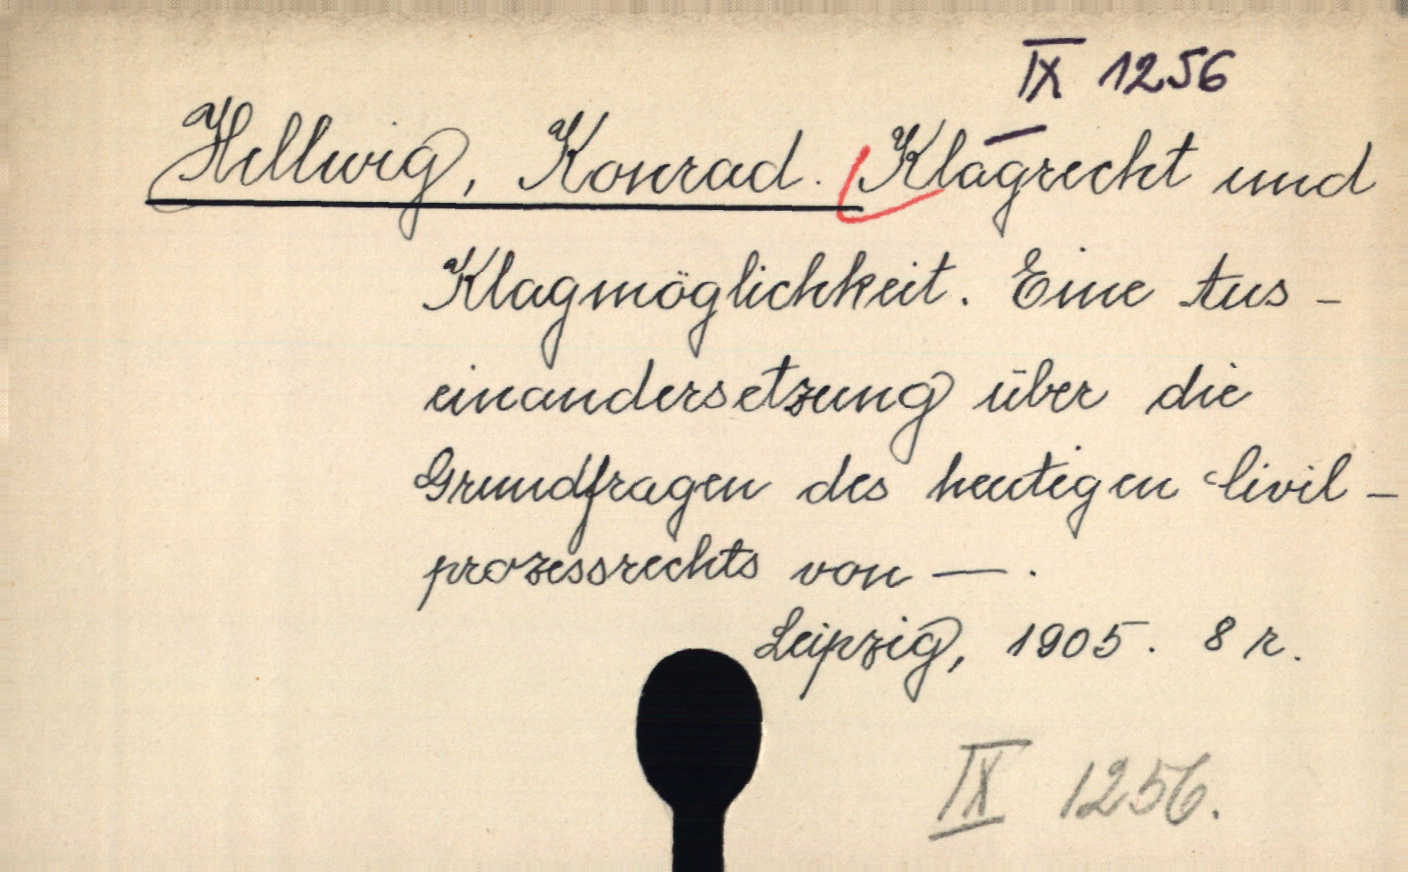 IX 1256
Hellwig, Konrad. Klagrecht und
Klagmöglichkeit. Eine Aus-
einandersetzung über die
Grundfragen des heutigen Civil-
prozessrechts von —.
Leipzig, 1905. 8 r.
IX 1256.